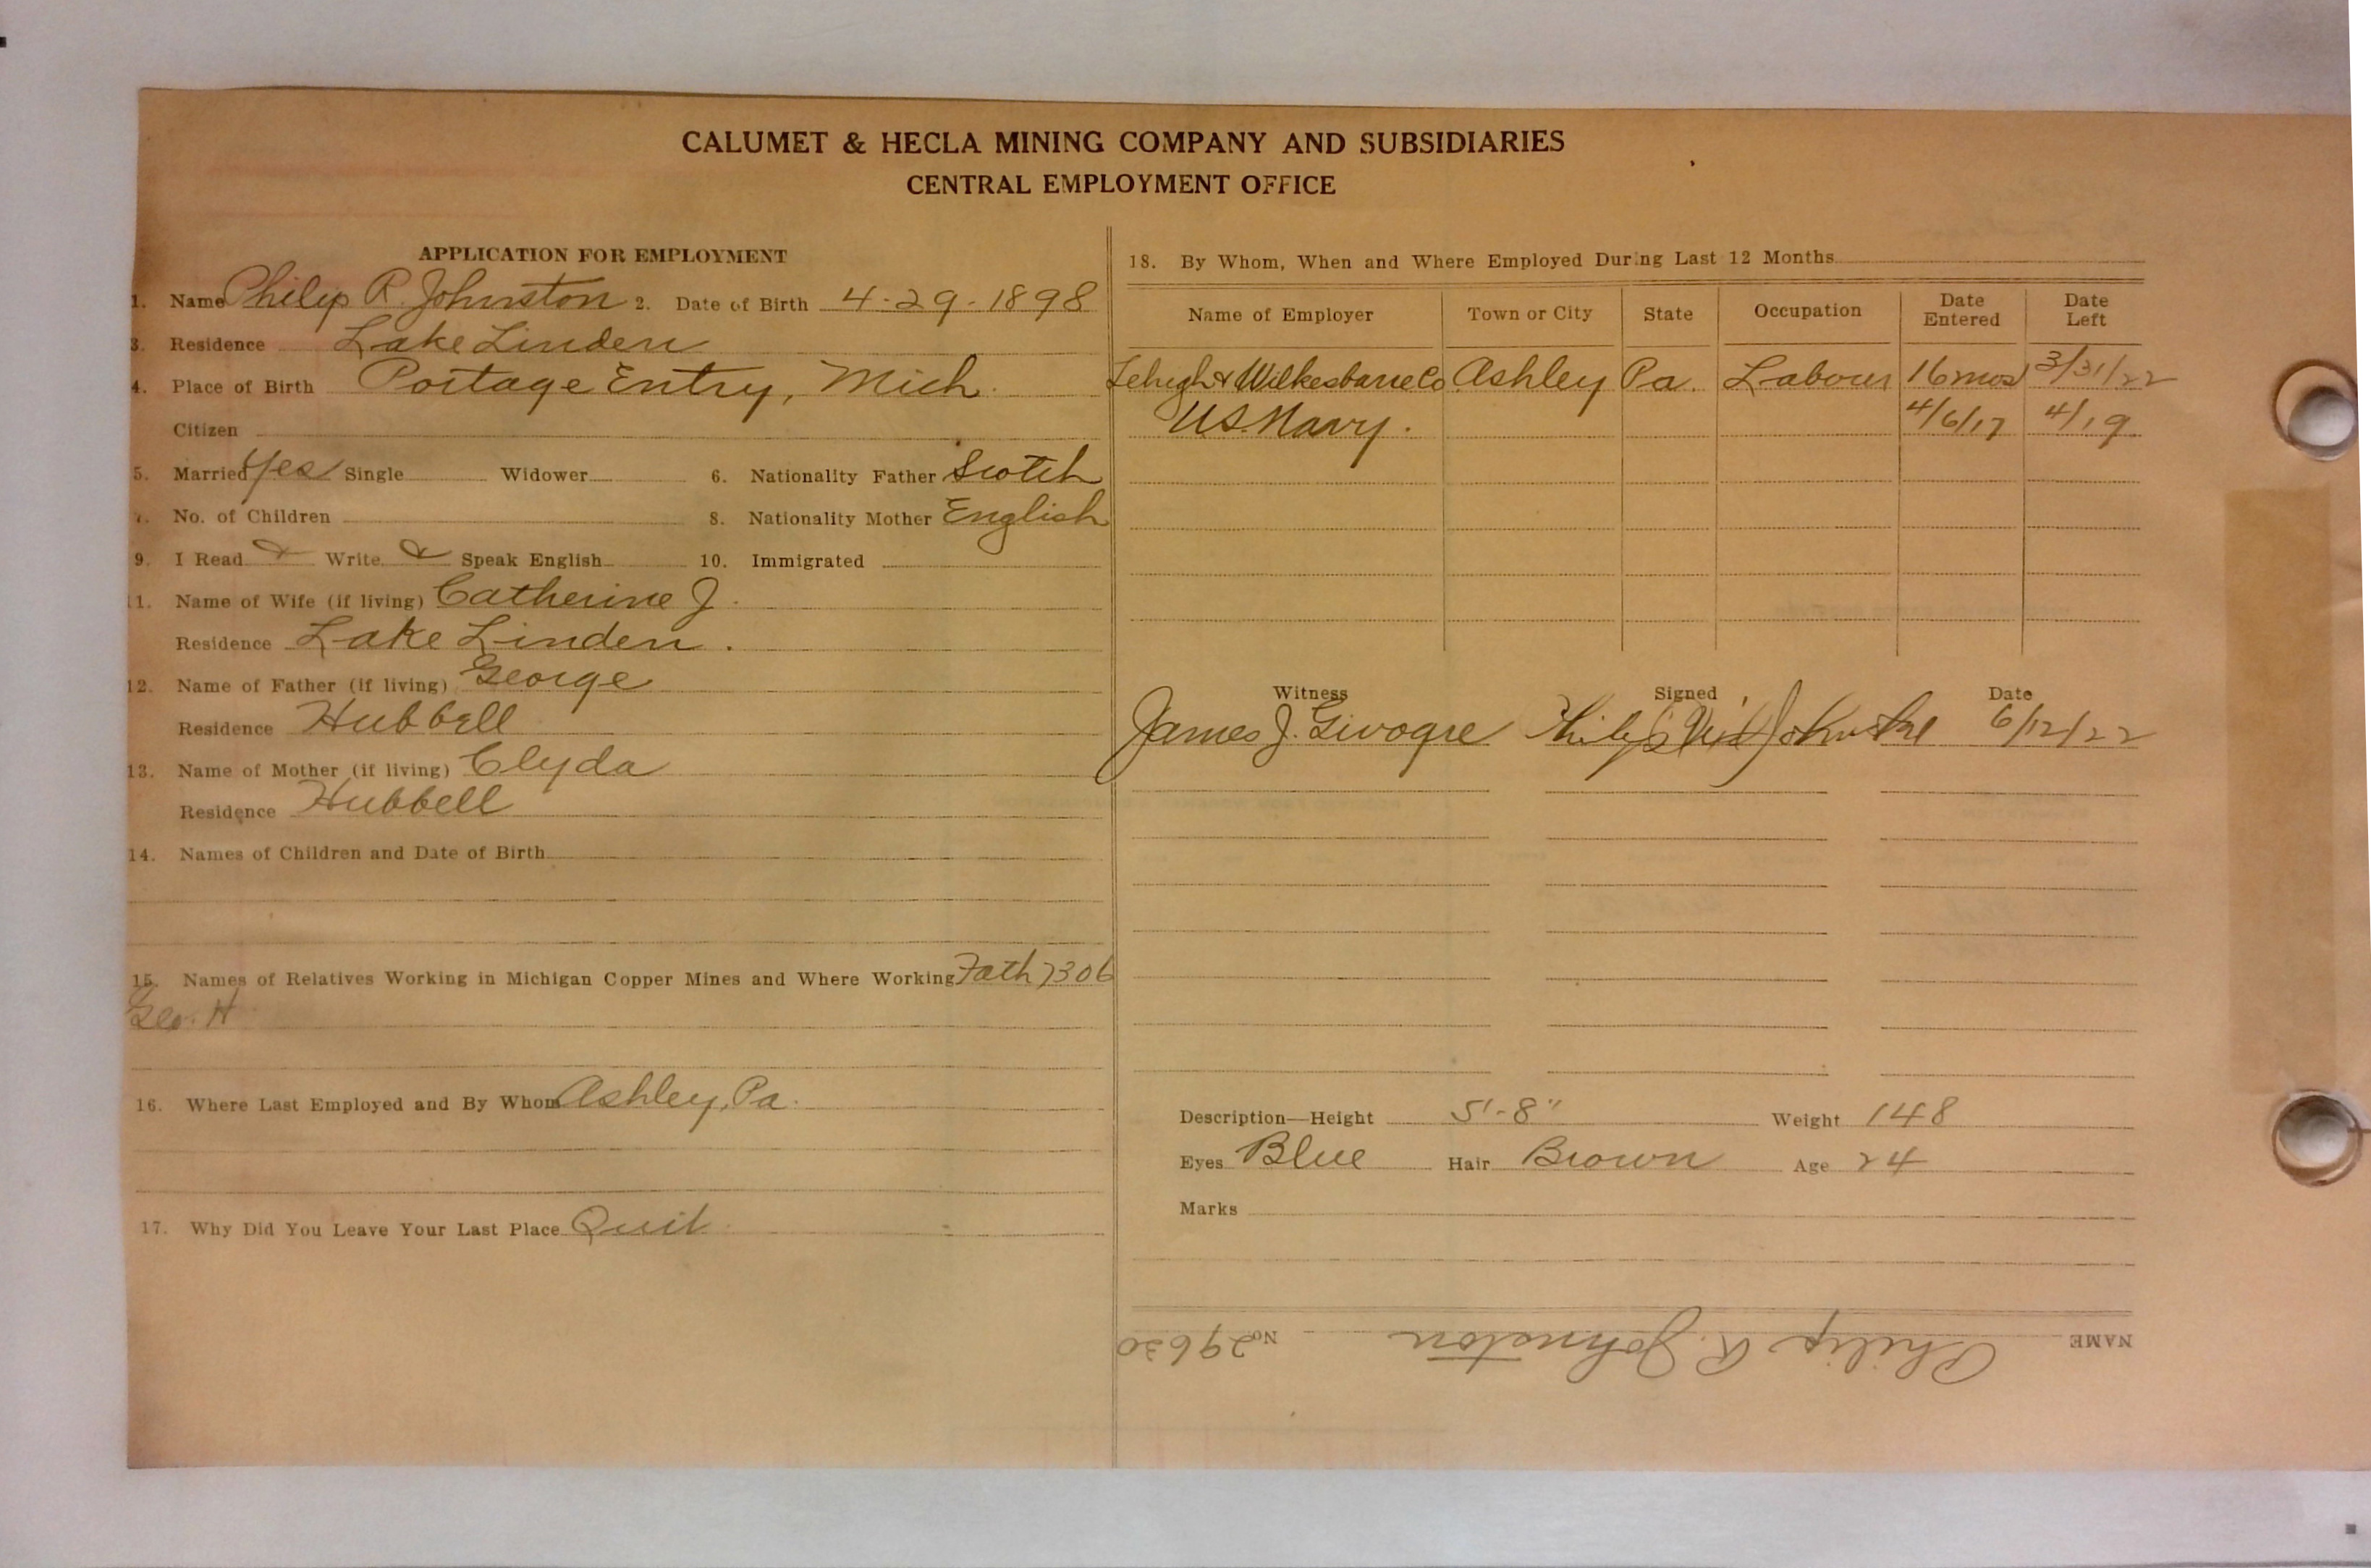 CALUMET & HECLA MINING COMPANY AND SUBSIDIARIES
CENTRAL EMPLOYMENT OFFICE
APPLICATION FOR EMPLOYMENT
1. Name Philip R. Johnston 2. Date of Birth 4-29-1898
3. Residence Lake Linden
4. Place of Birth Portage Entry, Mich.
Citizen
5. Married Yes Single Widower 6. Nationality Father Scotch
7. No. of Children 8. Nationality Mother English
9. I Read & Write & Speak English 10. Immigrated
11. Name of Wife (if living) Catherine J.
Residence Lake Linden.
12. Name of Father (if living) George
Residence Hubbell
13. Name of Mother (if living) Clyda
Residence Hubbell
14. Names of Children and Date of Birth
15. Names of Relatives Working in Michigan Copper Mines and Where Working Fath 7306
Geo. H
16. Where Last Employed and By Whom Ashley, Pa.
17. Why Did You Leave Your Last Place Quit
18. By Whom, When and Where Employed During Last 12 Months
Name of Employer Town or City State Occupation Date Entered Date Left
Lehigh & Wilkesbarre Co Ashley Pa. Labour 16 mos 3/31/22
U.S. Navy. 4/6/17 4/19
Witness Signed Date
James J. Philip Johnston 6/12/22
Description—Height 5'-8" Weight 148
Eyes Blue Hair Brown Age 24
Marks
NAME Philip R. Johnston No. 29630